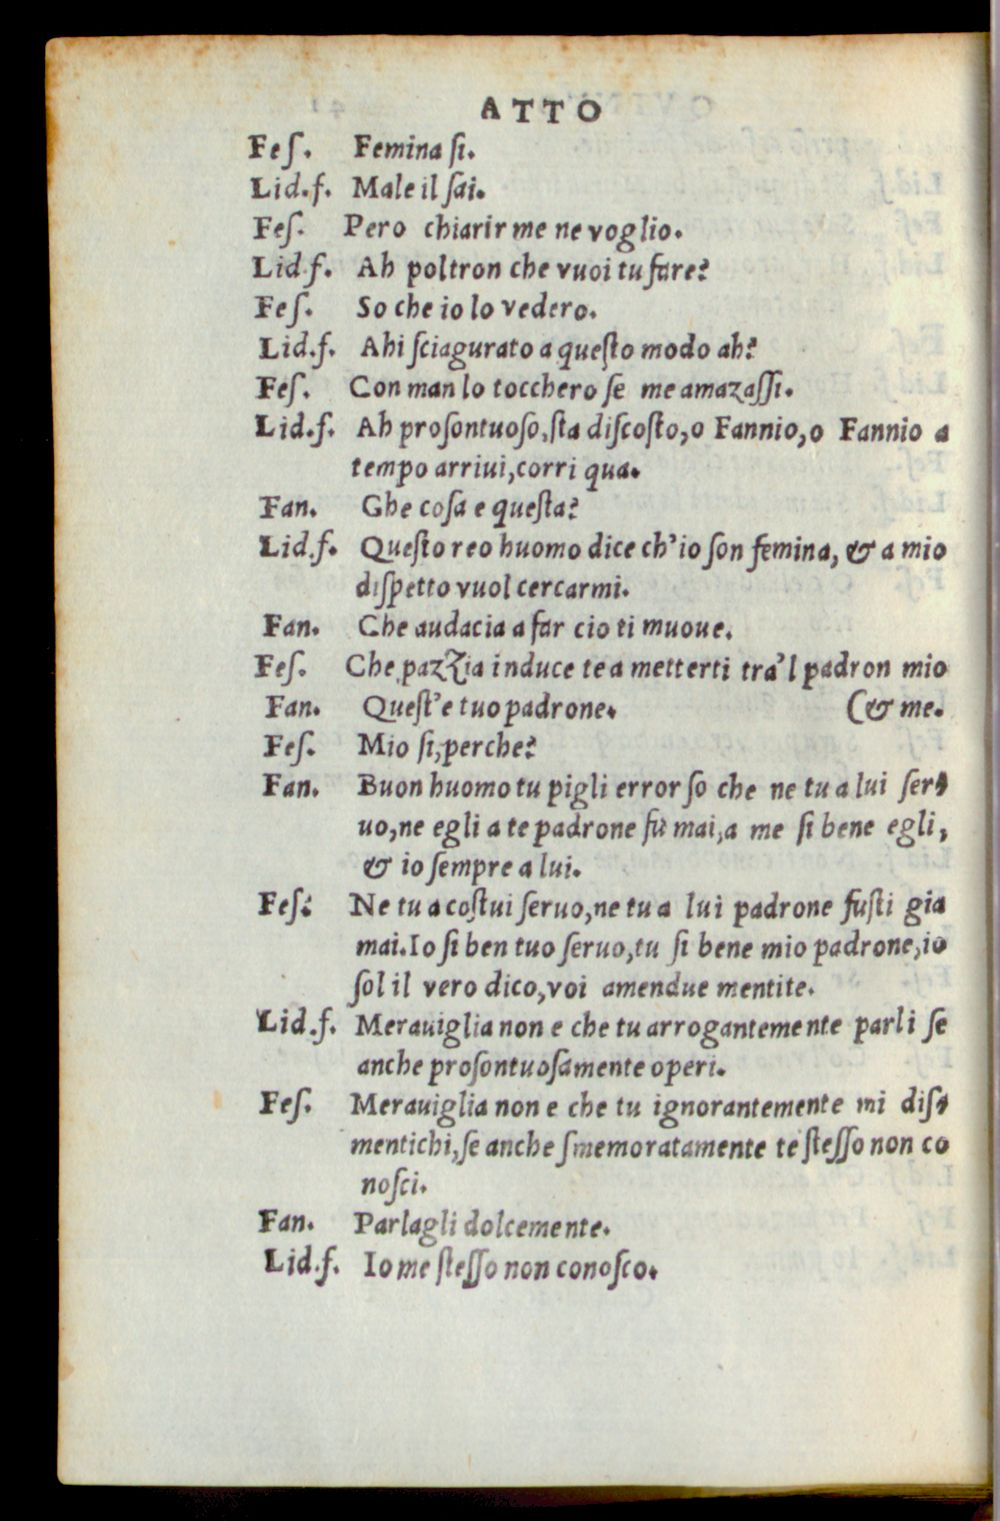 ATTO
Feſ. Femina ſi.
Lid.f. Male il ſai.
Feſ. Pero chiarir me ne voglio.
Lid.f. Ah poltron che vuoi tu fare?
Feſ. So che io lo vedero.
Lid.f. Ahi ſciagurato a queſto modo ah?
Feſ. Con man lo tocchero ſe me amazaſſi.
Lid.f. Ah proſontuoſo, ſta diſcoſto, o Fannio, o Fannio a
tempo arriui, corri qua.
Fan. Che coſa e queſta?
Lid.f. Queſto reo huomo dice ch'io ſon femina, & a mio
diſpetto vuol cercarmi.
Fan. Che audacia a far cio ti muoue.
Feſ. Che pazzia induce te a metterti tra'l padron mio
Fan. Queſt'e tuo padrone. (& me.
Feſ. Mio ſi, perche?
Fan. Buon huomo tu pigli error ſo che ne tu a lui ſer-
uo, ne egli a te padrone fù mai, a me ſi bene egli,
& io ſempre a lui.
Feſ. Ne tu a coſtui ſeruo, ne tu a lui padrone fuſti gia
mai. Io ſi ben tuo ſeruo, tu ſi bene mio padrone, io
ſol il vero dico, voi amendue mentite.
Lid.f. Merauiglia non e che tu arrogantemente parli ſe
anche proſontuoſamente operi.
Feſ. Merauiglia non e che tu ignorantemente mi diſ-
mentichi, ſe anche ſmemoratamente te ſteſſo non co
noſci.
Fan. Parlagli dolcemente.
Lid.f. Io me ſteſſo non conoſco.